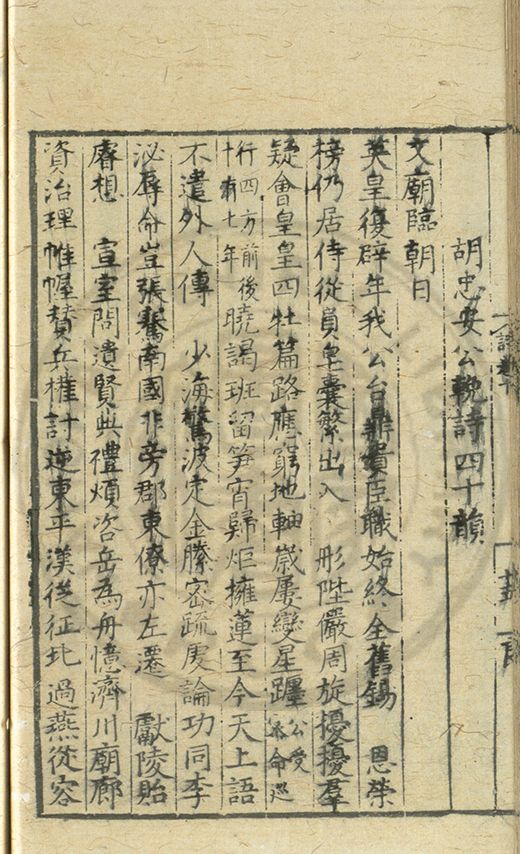 胡忠安公輓詩四十韻
文廟臨朝日
英皇復辟年我公台鼎貴臣職始終全舊錫 恩榮
榜仍居侍從員皁囊繁出入 彤陛嚴周旋擾擾羣
疑會皇皇四牡篇路應窮地軸歲屢變星躔公受命巡
行四方前後十有七年曉謁班留笋宵歸炬擁蓮至今天上語
不遣外人傳 少海驚波定金縢密疏虔論功同李
泌辱命豈張騫南國非旁郡東僚亦左遷 獻陵貽
睿想 宣室問遺賢典禮煩咨岳為舟憶濟川廟廊
資治理帷幄贊兵權計逆東平漢從征北過燕從容